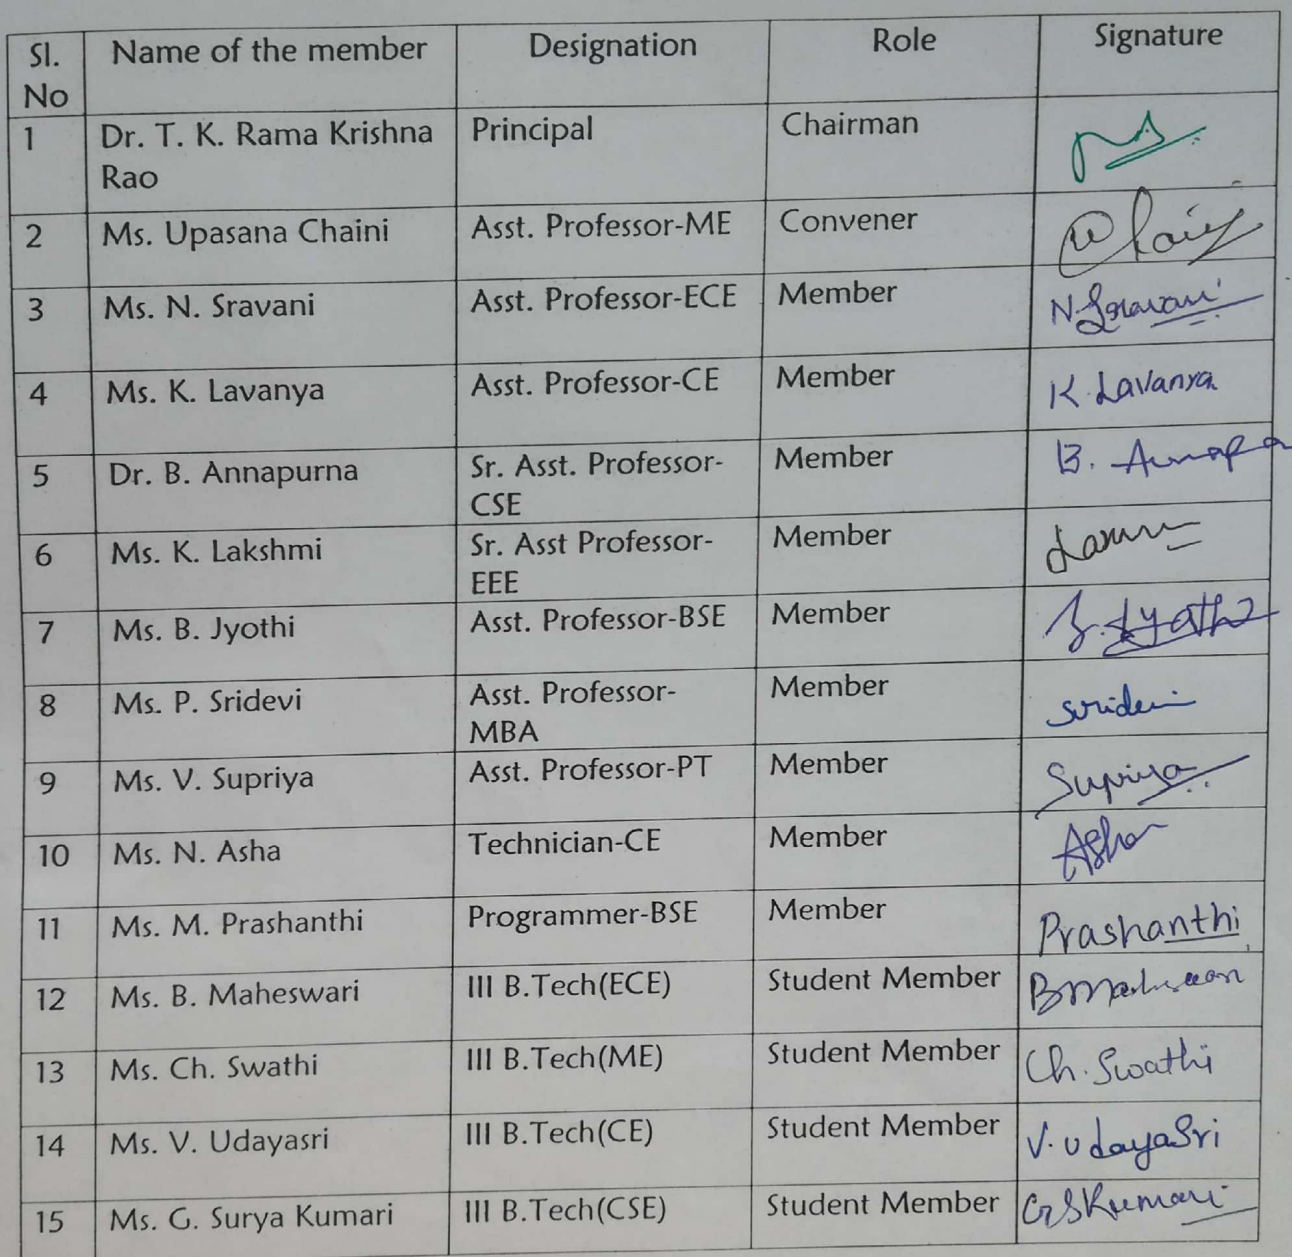 Sl. No Name of the member Designation Role Signature
1 Dr. T. K. Rama Krishna Rao Principal Chairman
2 Ms. Upasana Chaini Asst. Professor-ME Convener
3 Ms. N. Sravani Asst. Professor-ECE Member N. Sravani
4 Ms. K. Lavanya Asst. Professor-CE Member K. Lavanya
5 Dr. B. Annapurna Sr. Asst. Professor-CSE Member B.
6 Ms. K. Lakshmi Sr. Asst Professor-EEE Member
7 Ms. B. Jyothi Asst. Professor-BSE Member B. Jyothi
8 Ms. P. Sridevi Asst. Professor-MBA Member Sridevi
9 Ms. V. Supriya Asst. Professor-PT Member Supriya
10 Ms. N. Asha Technician-CE Member Asha
11 Ms. M. Prashanthi Programmer-BSE Member Prashanthi
12 Ms. B. Maheswari III B.Tech(ECE) Student Member
13 Ms. Ch. Swathi III B.Tech(ME) Student Member Ch. Swathi
14 Ms. V. Udayasri III B.Tech(CE) Student Member V. UdayaSri
15 Ms. G. Surya Kumari III B.Tech(CSE) Student Member GSKumari